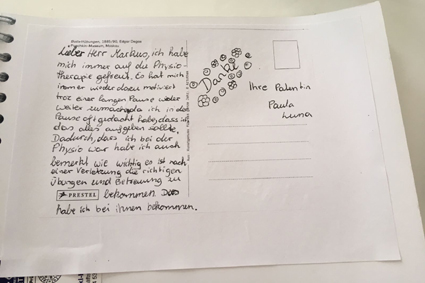 Ballettübungen, 1890/93. Edgar Degas
Museum, München
Lieber Herr Markus, ich habe
mich immer auf die Physio
therapie gefreut. Es hat mich
immer wieder dazu motiviert
troz einer langen Pause wieder
weiter zumachen da ich in der
Pause oft gedacht habe, dass ich
das alles aufgeben sollte.
Dadurch, dass ich bei der
Physio war habe ich auch
bemerkt wie wichtig es ist nach
einer Verletzung die richtigen
Übungen und Betreuung zu
PRESTEL bekommen. Das
habe ich bei ihnen bekommen.
Danke
Ihre Patientin
Paula
Luna